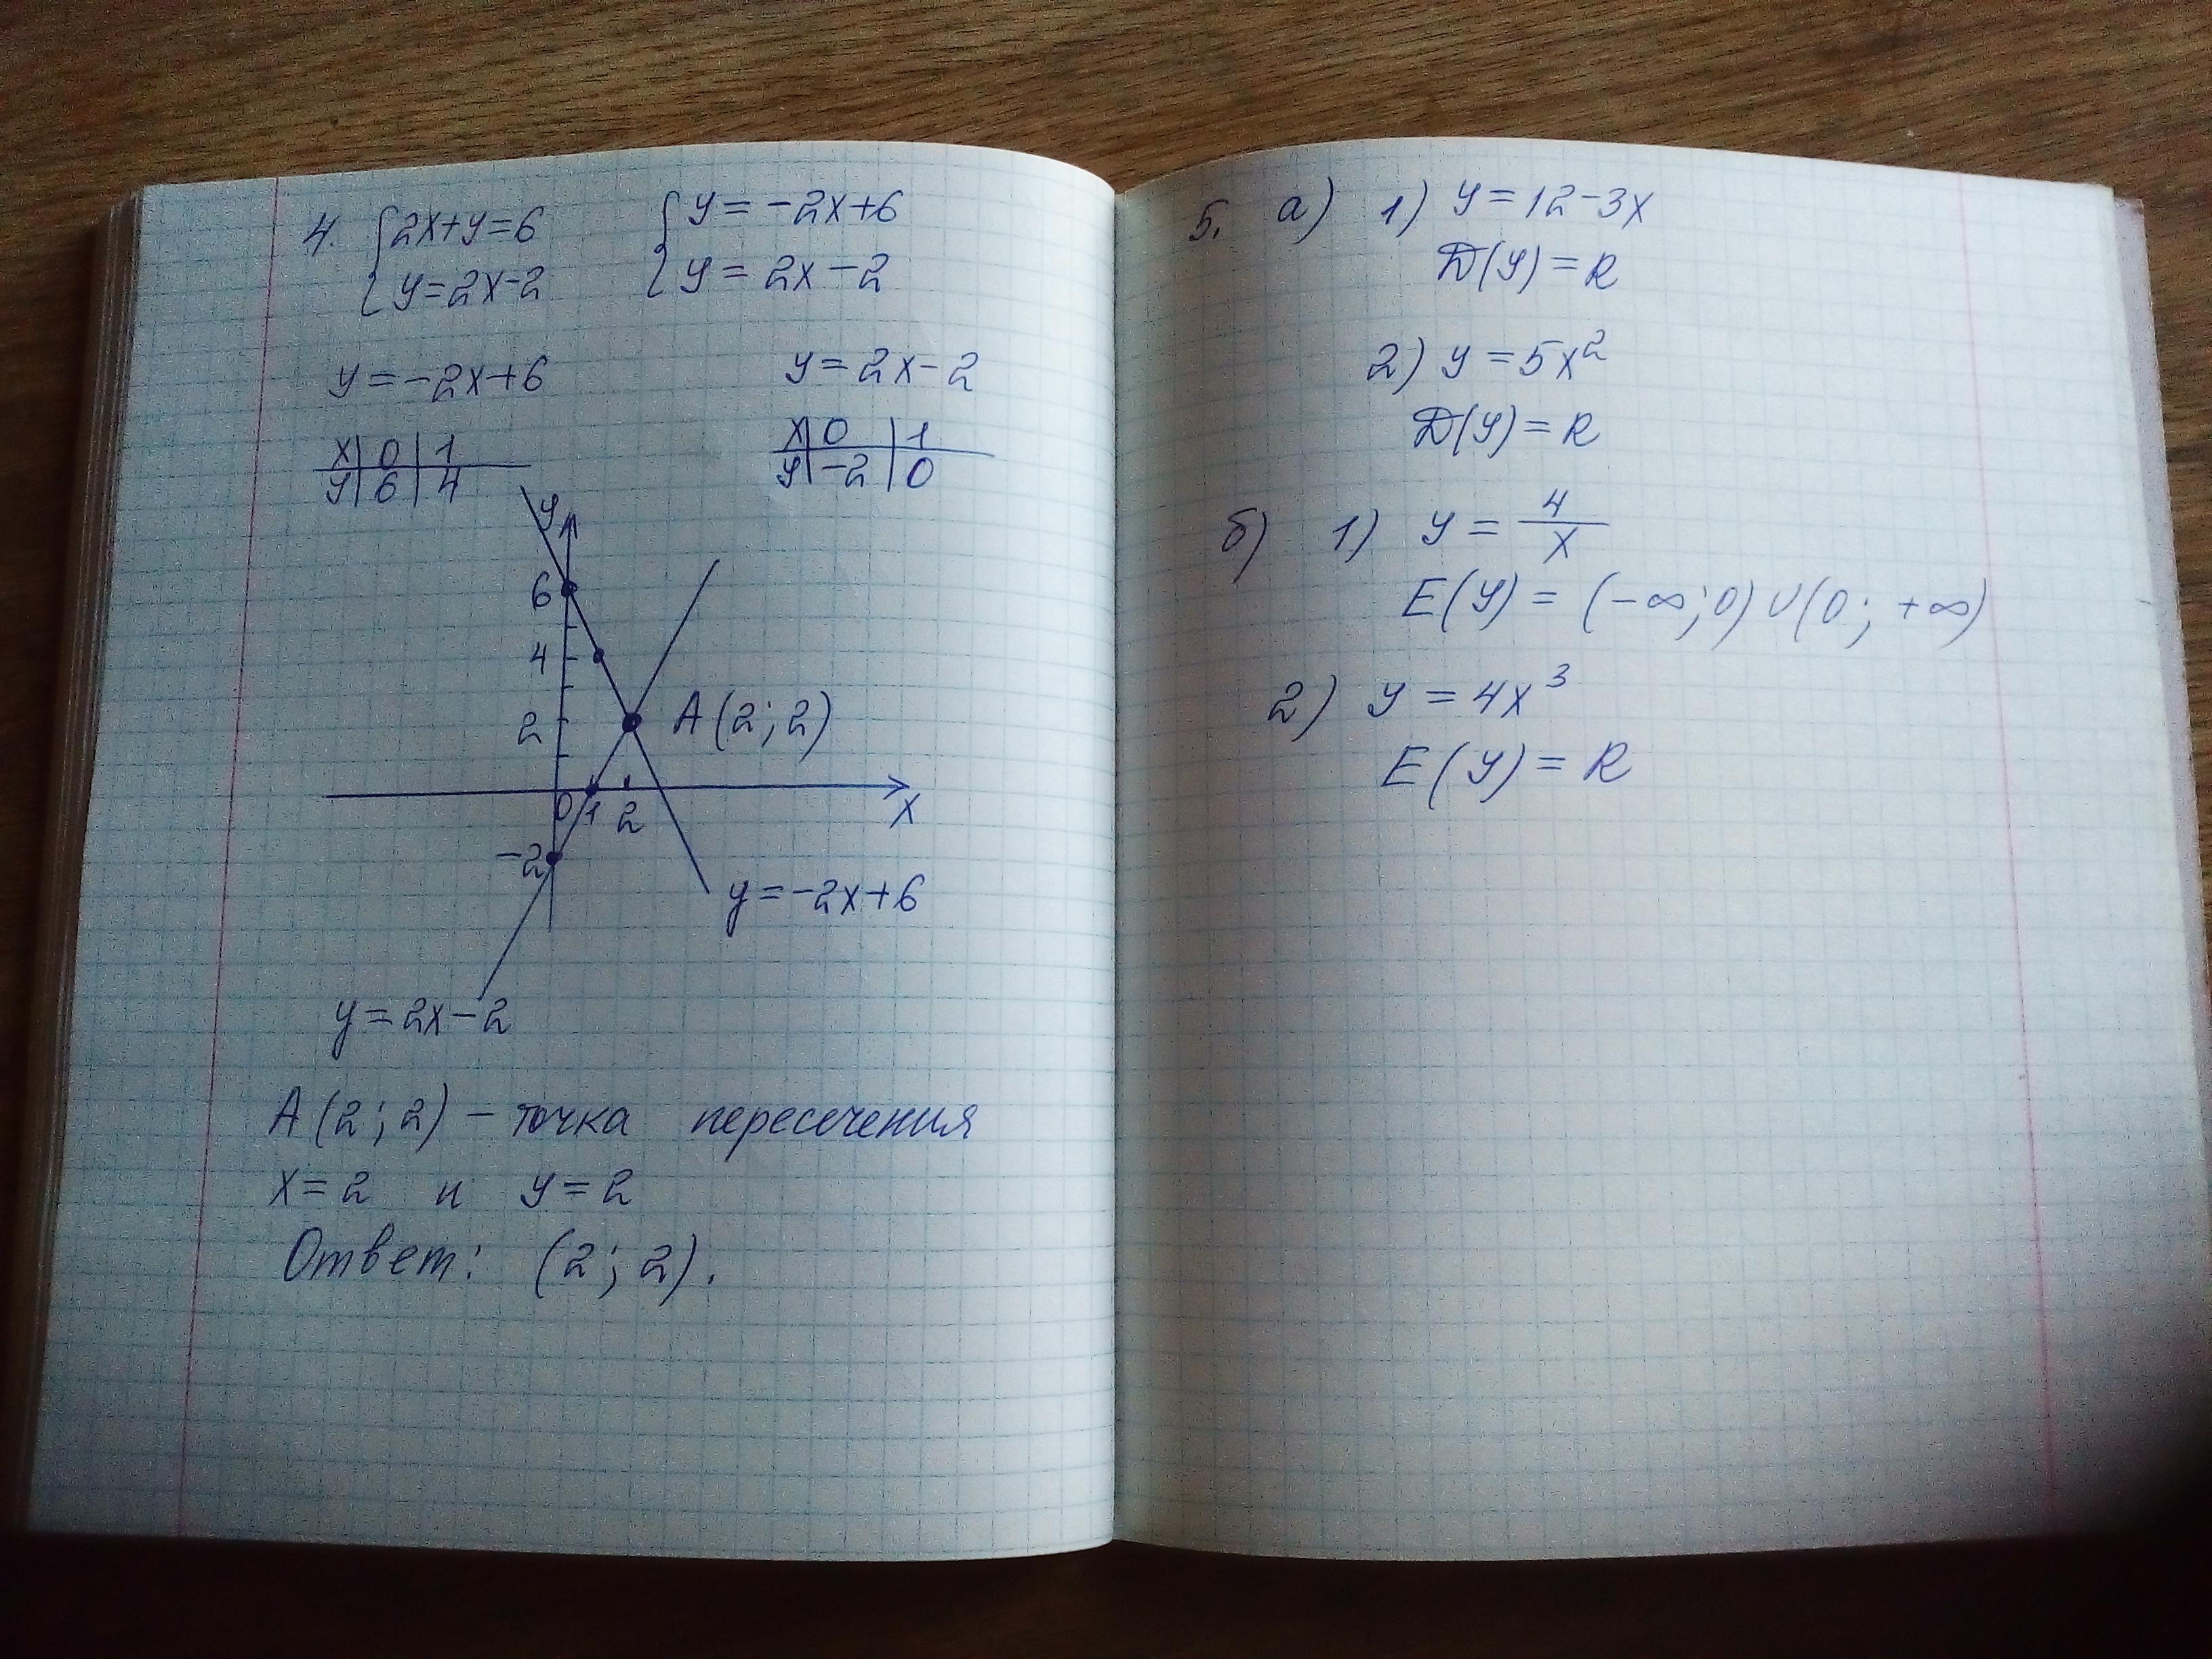 4. { 2x+y=6
y=2x-2
{ y=-2x+6
y=2x-2
y=-2x+6
x | 0 | 1
y | 6 | 4
y=2x-2
x | 0 | 1
y | -2 | 0
y
6
4
2
A(2;2)
0 1 2 x
-2
y=-2x+6
y=2x-2
A(2;2) - точка пересечения
x=2 и y=2
Ответ: (2;2).
5. а) 1) y=12-3x
D(y)=R
2) y=5x²
D(y)=R
б) 1) y=4/x
E(y)=(-∞;0)∪(0;+∞)
2) y=4x³
E(y)=R